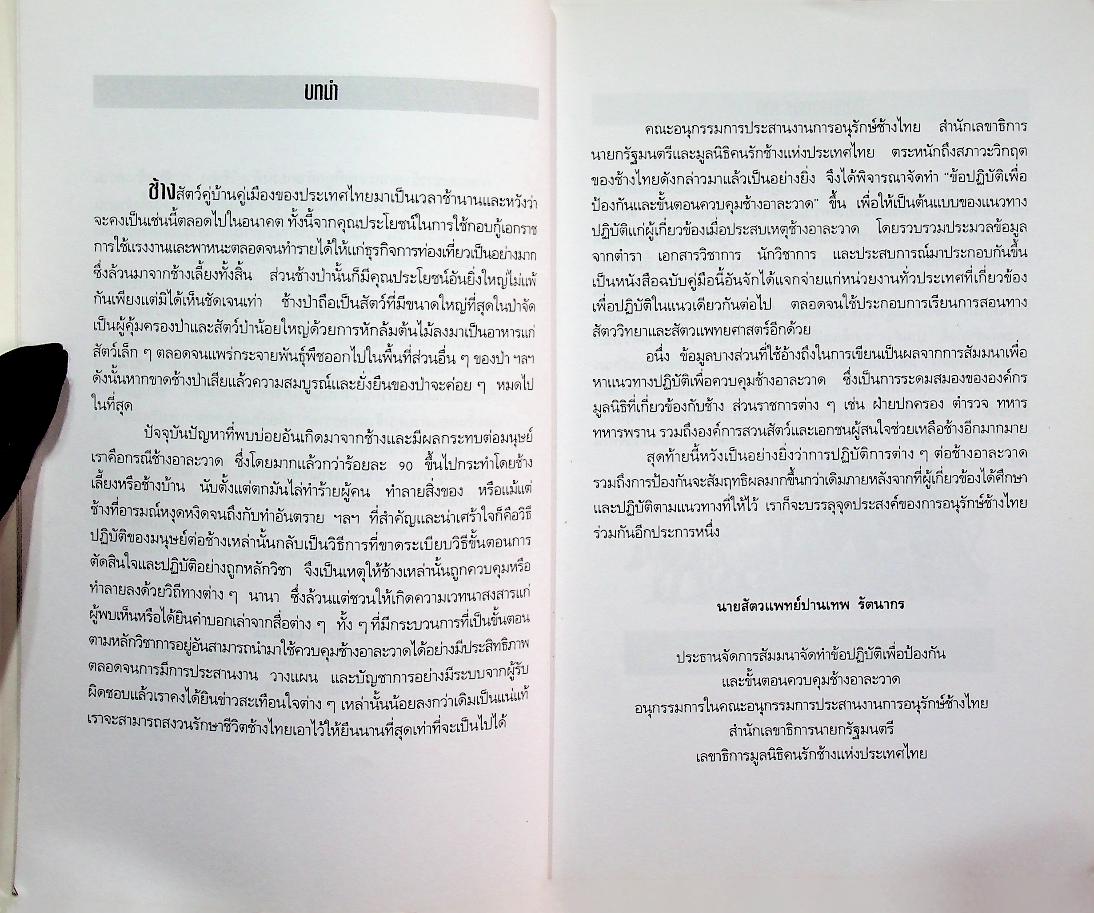 บทนำ
ช้างสัตว์คู่บ้านคู่เมืองของประเทศไทยมาเป็นเวลาช้านานและหวังว่า
จะคงเป็นเช่นนี้ตลอดไปในอนาคต ทั้งนี้จากคุณประโยชน์ในการใช้กอบกู้เอกราช
การใช้แรงงานและพาหนะตลอดจนทำรายได้ให้แก่ธุรกิจการท่องเที่ยวเป็นอย่างมาก
ซึ่งล้วนมาจากช้างเลี้ยงทั้งสิ้น ส่วนช้างป่านั้นก็มีคุณประโยชน์อันยิ่งใหญ่ไม่แพ้
กันเพียงแต่มิได้เห็นชัดเจนเท่า ช้างป่าถือเป็นสัตว์ที่มีขนาดใหญ่ที่สุดในป่าจัด
เป็นผู้คุ้มครองป่าและสัตว์ป่าน้อยใหญ่ด้วยการหักล้มต้นไม้ลงมาเป็นอาหารแก่
สัตว์เล็ก ๆ ตลอดจนแพร่กระจายพันธุ์พืชออกไปในพื้นที่ส่วนอื่น ๆ ของป่า ฯลฯ
ดังนั้นหากขาดช้างป่าเสียแล้วความสมบูรณ์และยั่งยืนของป่าจะค่อย ๆ หมดไป
ในที่สุด
ปัจจุบันปัญหาที่พบบ่อยอันเกิดมาจากช้างและมีผลกระทบต่อมนุษย์
เราคือกรณีช้างอาละวาด ซึ่งโดยมากแล้วกว่าร้อยละ 90 ขึ้นไปกระทำโดยช้าง
เลี้ยงหรือช้างบ้าน นับตั้งแต่ตกมันไล่ทำร้ายผู้คน ทำลายสิ่งของ หรือแม้แต่
ช้างที่อารมณ์หงุดหงิดจนถึงกับทำอันตราย ฯลฯ ที่สำคัญและน่าเศร้าใจก็คือวิธี
ปฏิบัติของมนุษย์ต่อช้างเหล่านั้นกลับเป็นวิธีการที่ขาดระเบียบวิธีขั้นตอนการ
ตัดสินใจและปฏิบัติอย่างถูกหลักวิชา จึงเป็นเหตุให้ช้างเหล่านั้นถูกควบคุมหรือ
ทำลายลงด้วยวิถีทางต่าง ๆ นานา ซึ่งล้วนแต่ชวนให้เกิดความเวทนาสงสารแก่
ผู้พบเห็นหรือได้ยินคำบอกเล่าจากสื่อต่าง ๆ ทั้ง ๆ ที่มีกระบวนการที่เป็นขั้นตอน
ตามหลักวิชาการอยู่อันสามารถนำมาใช้ควบคุมช้างอาละวาดได้อย่างมีประสิทธิภาพ
ตลอดจนการมีการประสานงาน วางแผน และบัญชาการอย่างมีระบบจากผู้รับ
ผิดชอบแล้วเราคงได้ยินข่าวสะเทือนใจต่าง ๆ เหล่านั้นน้อยลงกว่าเดิมเป็นแน่แท้
เราจะสามารถสงวนรักษาชีวิตช้างไทยเอาไว้ให้ยืนนานที่สุดเท่าที่จะเป็นไปได้
คณะอนุกรรมการประสานงานการอนุรักษ์ช้างไทย สำนักเลขาธิการ
นายกรัฐมนตรีและมูลนิธิคนรักช้างแห่งประเทศไทย ตระหนักถึงสภาวะวิกฤต
ของช้างไทยดังกล่าวมาแล้วเป็นอย่างยิ่ง จึงได้พิจารณาจัดทำ "ข้อปฏิบัติเพื่อ
ป้องกันและขั้นตอนควบคุมช้างอาละวาด" ขึ้น เพื่อให้เป็นต้นแบบของแนวทาง
ปฏิบัติแก่ผู้เกี่ยวข้องเมื่อประสบเหตุช้างอาละวาด โดยรวบรวมประมวลข้อมูล
จากตำรา เอกสารวิชาการ นักวิชาการ และประสบการณ์มาประกอบกันขึ้น
เป็นหนังสือฉบับคู่มือนี้อันจักได้แจกจ่ายแก่หน่วยงานทั่วประเทศที่เกี่ยวข้อง
เพื่อปฏิบัติในแนวเดียวกันต่อไป ตลอดจนใช้ประกอบการเรียนการสอนทาง
สัตววิทยาและสัตวแพทยศาสตร์อีกด้วย
อนึ่ง ข้อมูลบางส่วนที่ใช้อ้างถึงในการเขียนเป็นผลจากการสัมมนาเพื่อ
หาแนวทางปฏิบัติเพื่อควบคุมช้างอาละวาด ซึ่งเป็นการระดมสมองขององค์กร
มูลนิธิที่เกี่ยวข้องกับช้าง ส่วนราชการต่าง ๆ เช่น ฝ่ายปกครอง ตำรวจ ทหาร
ทหารพราน รวมถึงองค์การสวนสัตว์และเอกชนผู้สนใจช่วยเหลือช้างอีกมากมาย
สุดท้ายนี้หวังเป็นอย่างยิ่งว่าการปฏิบัติการต่าง ๆ ต่อช้างอาละวาด
รวมถึงการป้องกันจะสัมฤทธิผลมากขึ้นกว่าเดิมภายหลังจากที่ผู้เกี่ยวข้องได้ศึกษา
และปฏิบัติตามแนวทางที่ให้ไว้ เราก็จะบรรลุจุดประสงค์ของการอนุรักษ์ช้างไทย
ร่วมกันอีกประการหนึ่ง
นายสัตวแพทย์ปานเทพ รัตนากร
ประธานจัดการสัมมนาจัดทำข้อปฏิบัติเพื่อป้องกัน
และขั้นตอนควบคุมช้างอาละวาด
อนุกรรมการในคณะอนุกรรมการประสานงานการอนุรักษ์ช้างไทย
สำนักเลขาธิการนายกรัฐมนตรี
เลขาธิการมูลนิธิคนรักช้างแห่งประเทศไทย